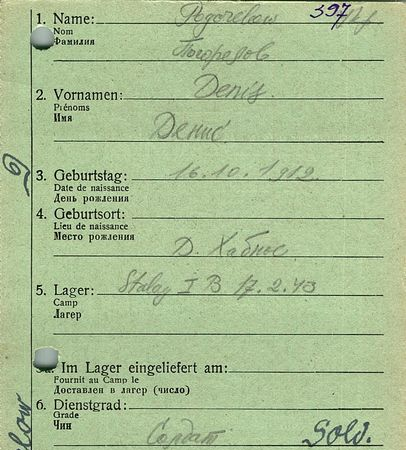 1. Name: 397
Nom
Фамилия
2. Vornamen: Denis
Prénoms
Имя Денис
3. Geburtstag: 16.10.1912
Date de naissance
День рождения
4. Geburtsort:
Lieu de naissance
Место рождения
Д.
5. Lager: Stalag I B 17.2.43
Camp
Лагерь
Im Lager eingeliefert am:
Fournit au Camp le
Доставлен в лагер (число)
6. Dienstgrad:
Grade
Чин
Солдат Sold.